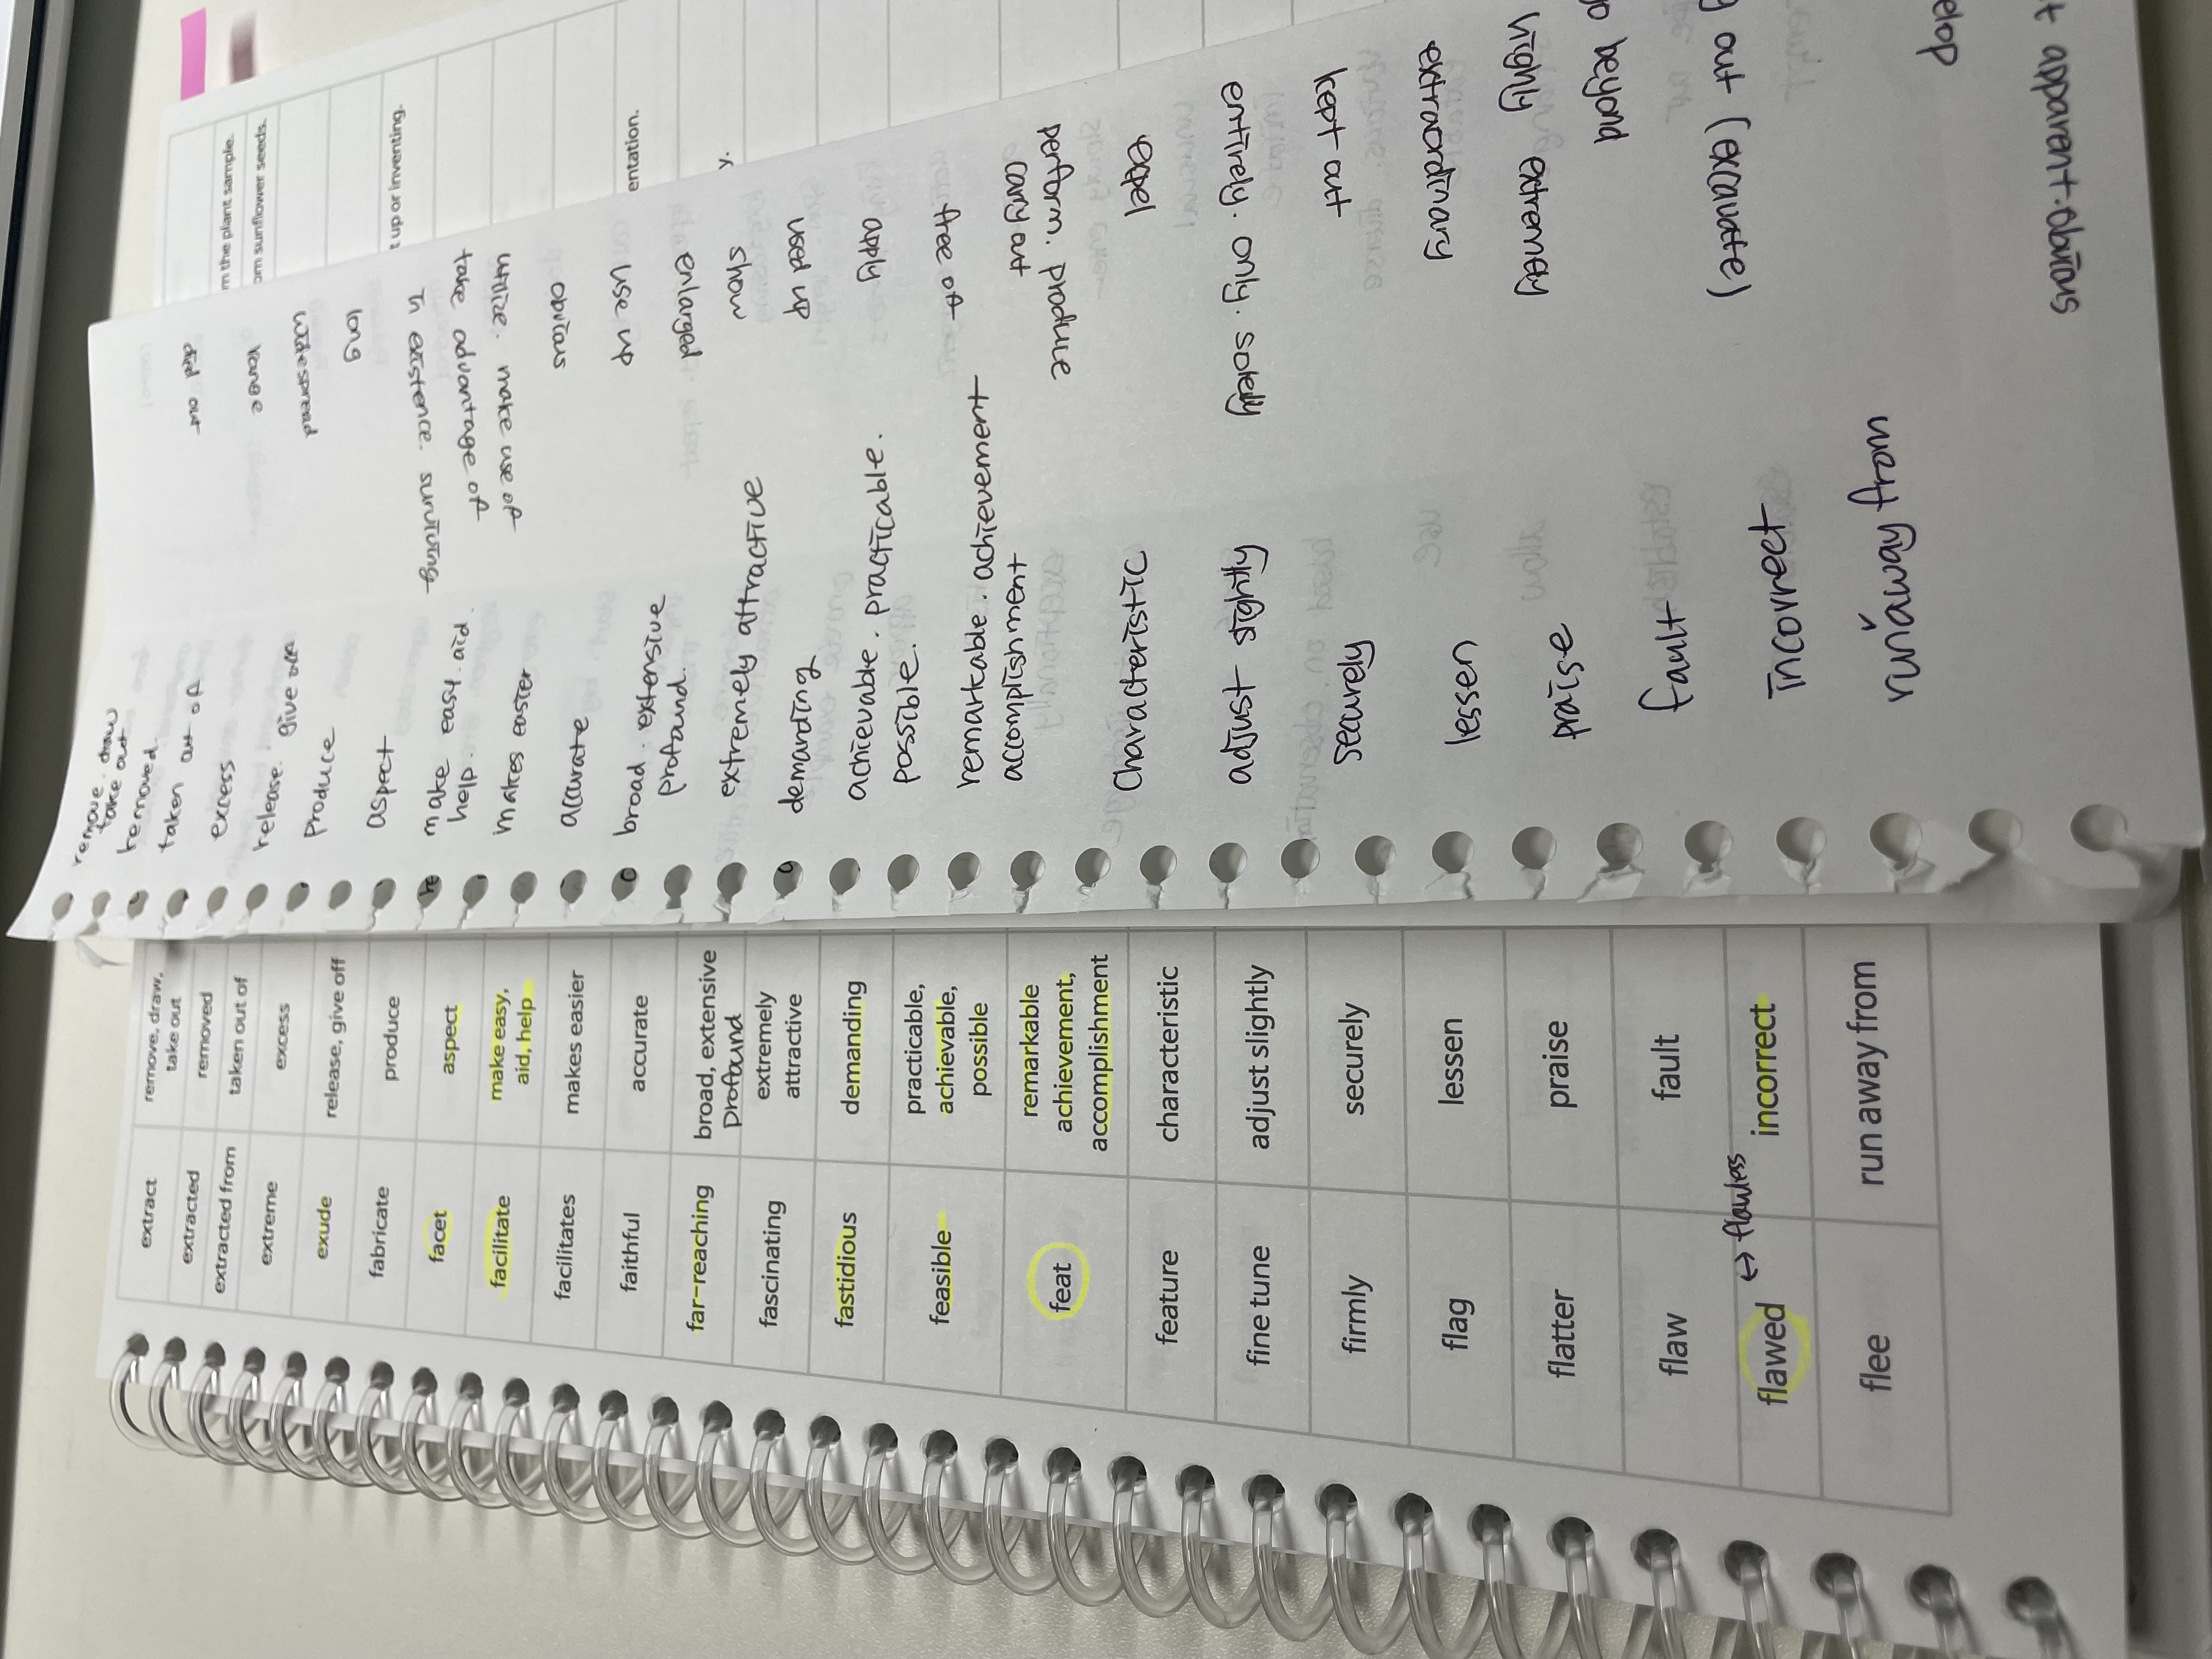 extract
remove, draw,
take out
extracted
removed
extracted from
taken out of
extreme
excess
exude
release, give off
fabricate
produce
facet
aspect
facilitate
make easy,
aid, help
facilitates
makes easier
faithful
accurate
far-reaching
broad, extensive
profound
fascinating
extremely
attractive
fastidious
demanding
feasible
practicable,
achievable,
possible
feat
remarkable
achievement,
accomplishment
feature
characteristic
fine tune
adjust slightly
firmly
securely
flag
lessen
flatter
praise
flaw
fault
flawed
↔ flawless
incorrect
flee
run away from
remove. draw
take out
removed
taken out of
excess
release. give off
produce
aspect
make easy. aid.
help.
makes easier
accurate
broad. extensive
profound.
extremely attractive
demanding
achievable. practicable.
possible.
remarkable. achievement
accomplishment
characteristic
adjust slightly
securely
lessen
praise
fault
incorrect
runaway from
did not
range
widespread
long
in existence. surviving
take advantage of
utilize. make use of
obvious
use up
enlarged
show
used up
apply
free of
perform. produce
carry out
expel
entirely. only. solely
kept out
extraordinary
highly extremely
go beyond
out (excavate)
elop
t apparent. obvious
m the plant sample.
om sunflower seeds.
t up or inventing.
entation.
y.